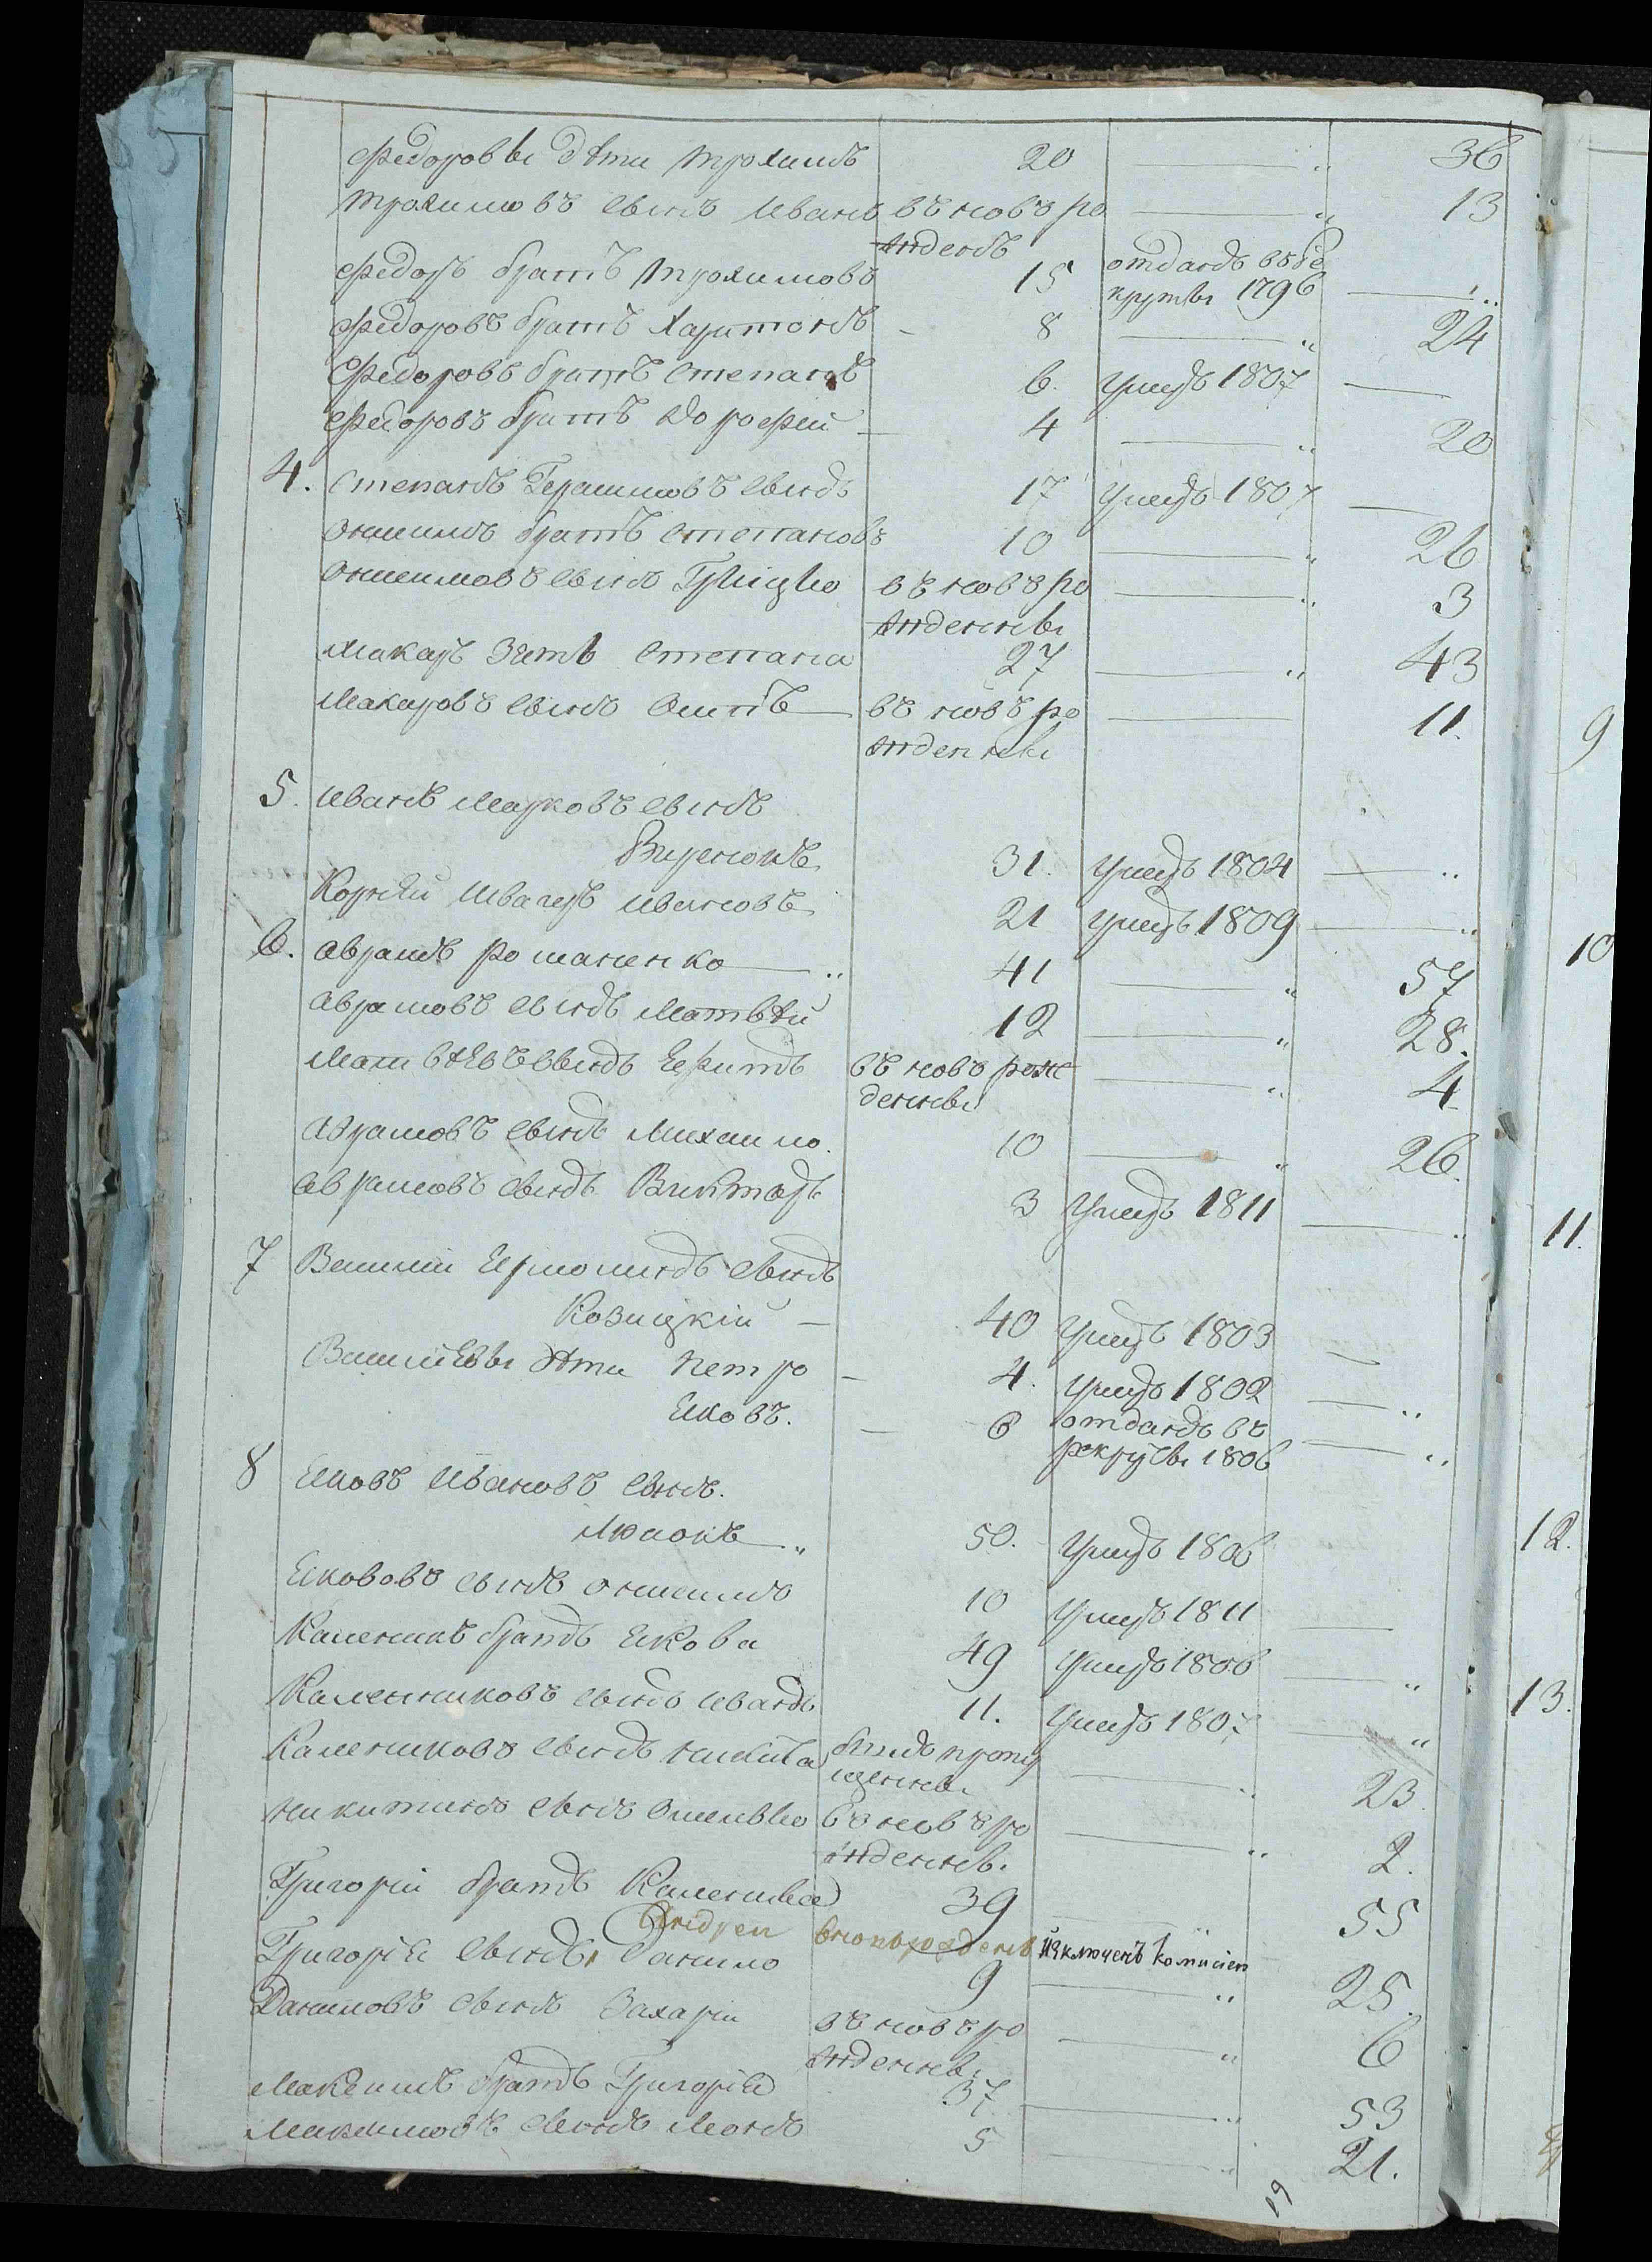 Федоровы дѣти Трохимъ 20 — „ 36
Трохимовъ сынъ Иванъ въ новъ ро — „ 13
жденъ
Федоръ братъ Трохимовъ 15 отданъ въ ре
круты 1796 — „
Федоровъ братъ Харитонъ - 8 — „ 24
Федоровъ братъ Степанъ 6. умеръ 1807 —
Федоровъ братъ Дорофей — 4 — „ 20
4. Степанъ Герасимовъ сынъ 17 умеръ 1807 —
Онисимъ братъ Степановъ 10 — „ 26
Онисимовъ сынъ Грицко въ новъ ро — „ 3
жденны
Макаръ зять Степана 27 — „ 43
Макаровъ сынъ Осипъ — въ новъ ро — 11.
жденны
5. Иванъ Марковъ сынъ
31. умеръ 1804 — „
Корнѣй Швагеръ Ивановъ 21 умеръ 1809 — „
6. Аврамъ Романенко — „ 41 — „ 57
Аврамовъ сынъ Матвѣй 12 — „ 28.
Матвѣевъ сынъ Ефимъ въ новъ рож — „ 4
денны
Аврамовъ сынъ Михаило. 10 — „ 26.
Аврамовъ сынъ Викторъ 3 Умеръ 1811 — „
7 Василій сынъ
Козицкій — 40 умеръ 1803 —
Василіевы дѣти Петро — 4. умеръ 1802 — „
Яковъ. — 6 отданъ въ
рекруты 1806 — „
8 Яковъ Ивановъ сынъ.
„ 50. умеръ 1806
Якововъ сынъ Онисимъ 10 умеръ 1811 —
Каленикъ братъ Якова 49 умеръ 1806 — „
Калениковъ сынъ Иванъ 11. умеръ 1807 — „
Калениковъ сынъ Никита былъ пропу
щенны — „ 23.
Никитинъ сынъ въ новъ ро — „ 2.
жденны.
Григорій братъ Каленика 39 — „ 55
Андреи вновьрожденъ Изключенъ Комисіею
Григорія сынъ Данило 9 — „ 25.
Даниловъ сынъ Захарій въ новъ ро — „ 6
жденны.
Максимъ братъ Григорія 37 — „ 53
Максимовъ сынъ 5 — „ 21.
19
9
10
11.
12.
13.